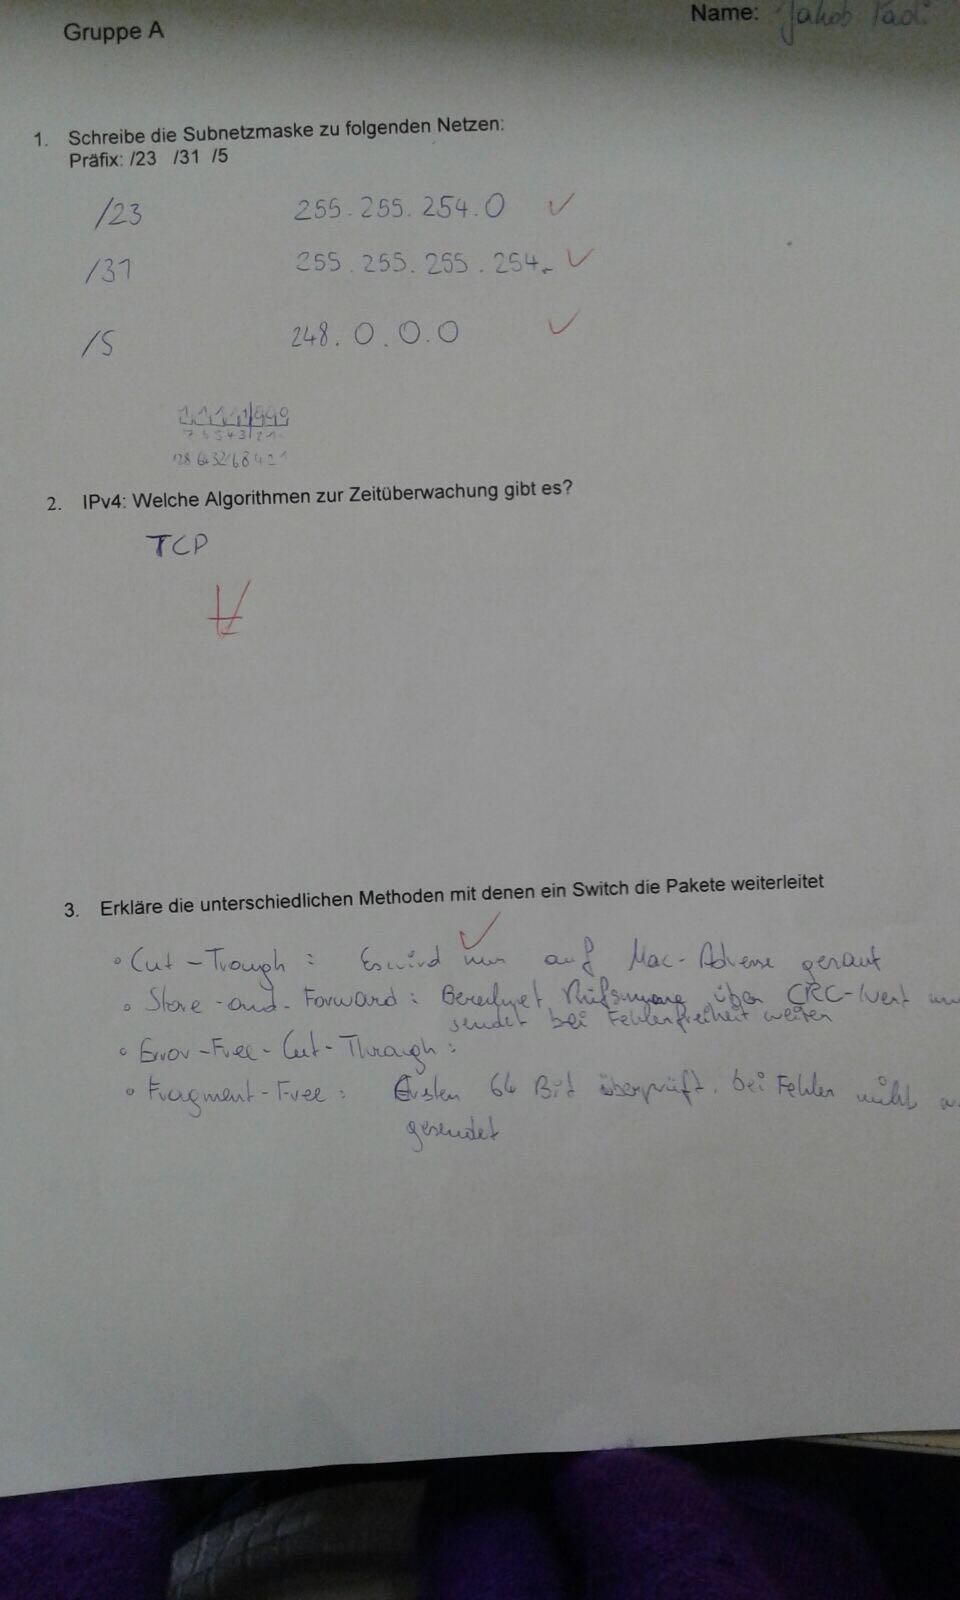 Name: Jakob
Gruppe A
1. Schreibe die Subnetzmaske zu folgenden Netzen:
Präfix: /23 /31 /5
/23 255.255.254.0
/31 255.255.255.254
/5 248.0.0.0
7 6 5 4 3 2 1
128 64 32 16 8 4 2 1
2. IPv4: Welche Algorithmen zur Zeitüberwachung gibt es?
TCP
3. Erkläre die unterschiedlichen Methoden mit denen ein Switch die Pakete weiterleitet
• Cut-Trough: Es wird nur auf Mac-Adresse geschaut
• Store-and-Forward: Berechnet über CRC-Wert
sendet bei Fehlerfreiheit weiter
• Error-Free-Cut-Through:
• Fragment-Free: Ersten 64 Bit überprüft, bei Fehler nicht
gesendet